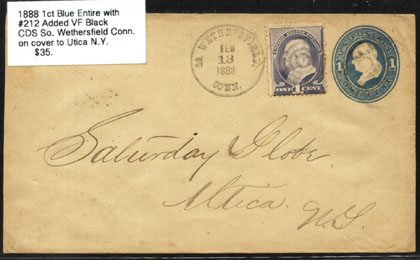 1888 1ct Blue Entire with
#212 Added VF Black
CDS So. Wethersfield Conn.
on cover to Utica N.Y.
$35.
SO. WETHERSFIELD,
FEB
13
1888
CONN.
ONE 1 CENT
1 1
Saturday Globe.
Utica.
N.Y.